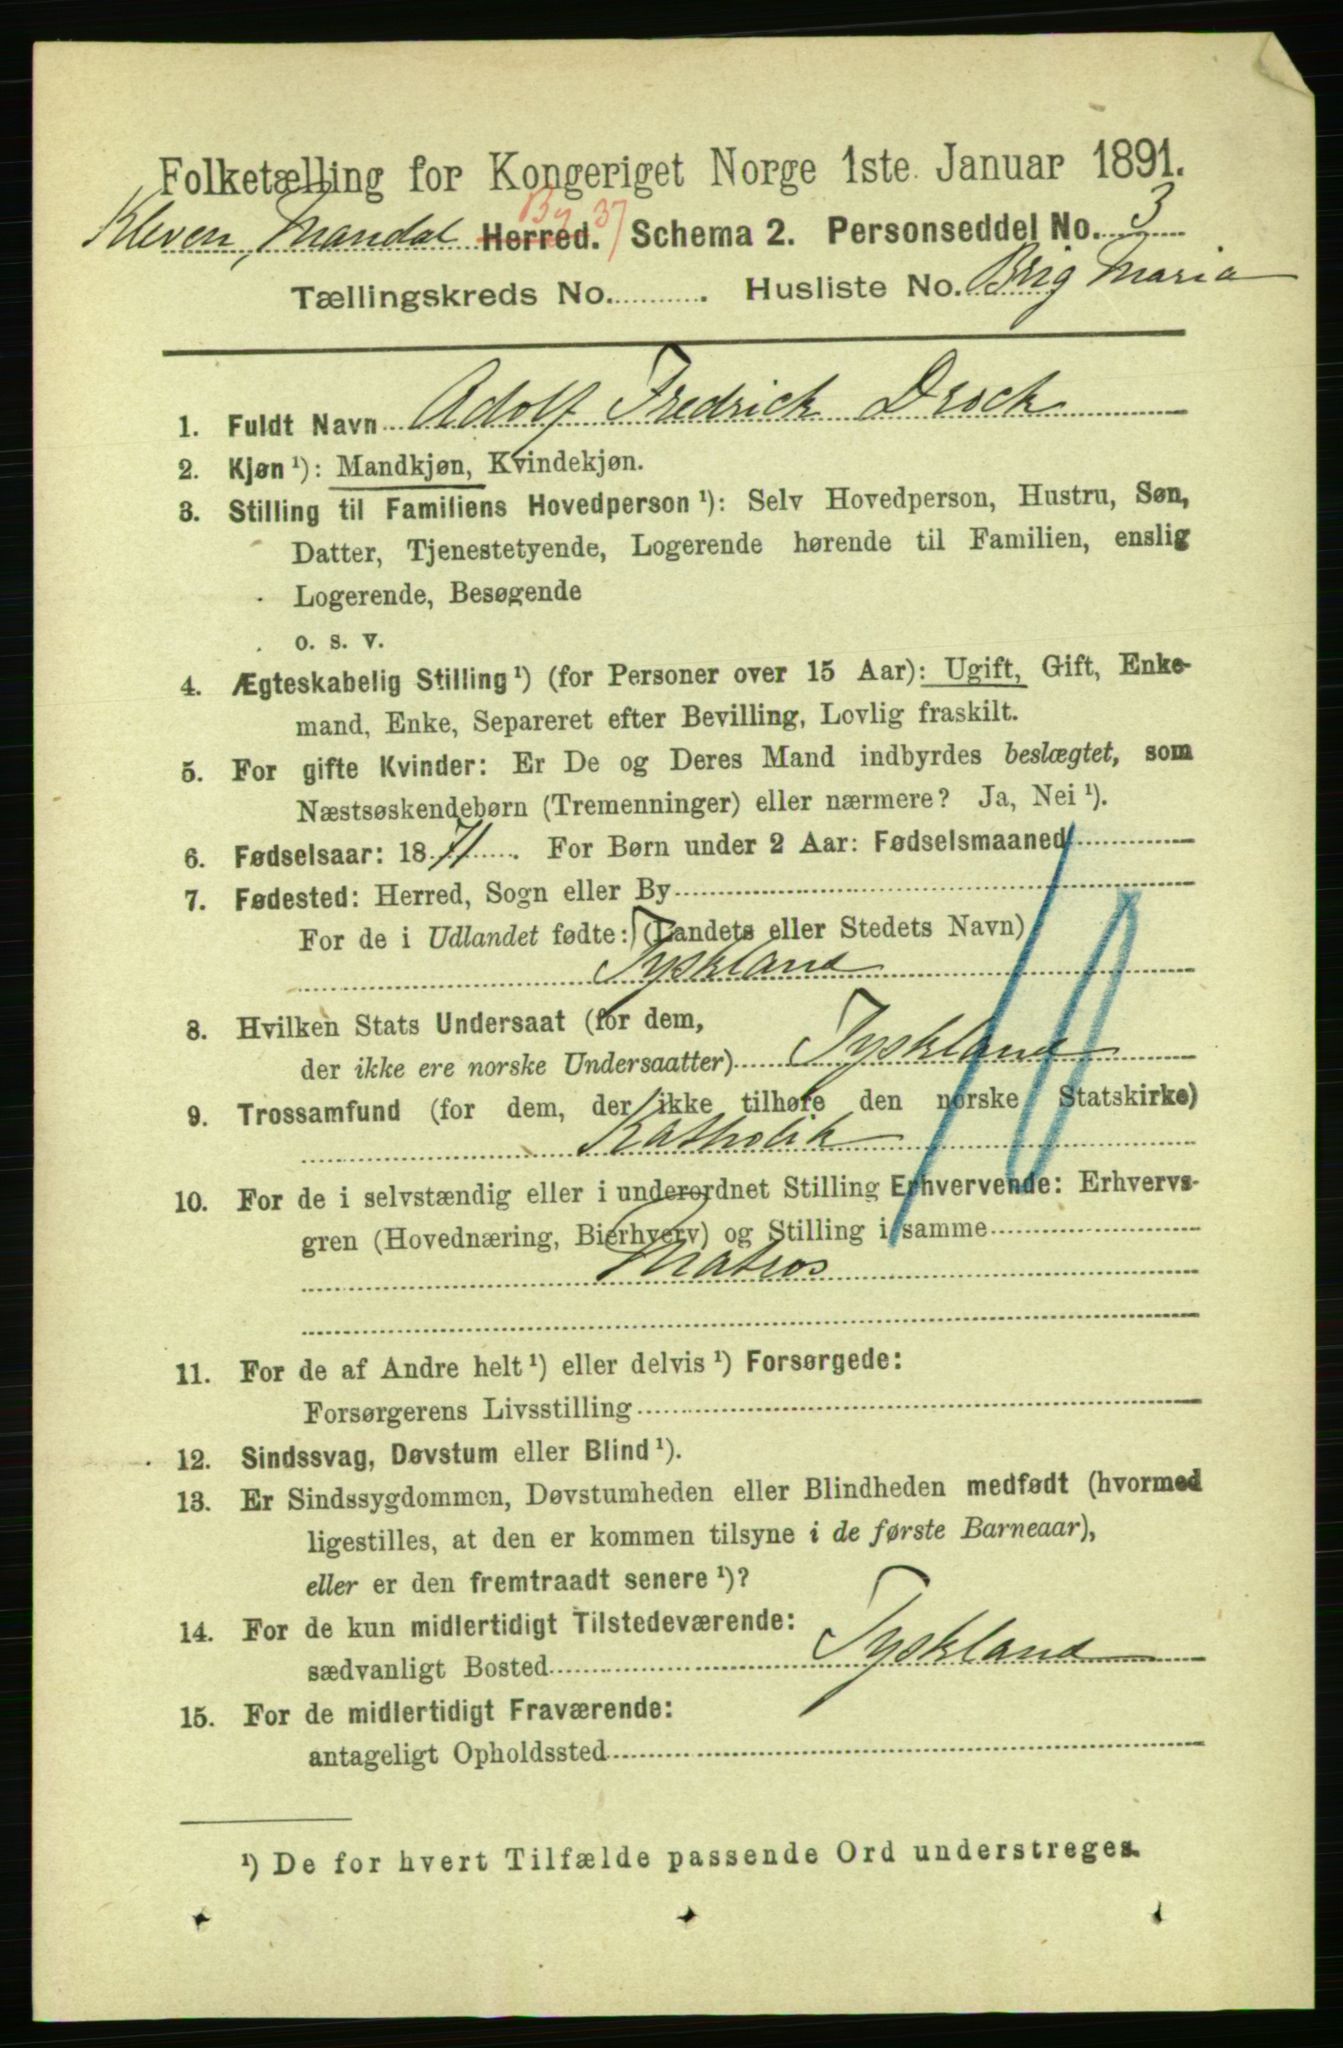 Folketælling for Kongeriget Norge 1ste Januar 1891.
Kleven, Mandal Herred. By 37 Schema 2. Personseddel No. 3
Tællingskreds No. . Husliste No. Brig Maria
1. Fuldt Navn Adolf Fredrick
2. Kjøn ¹): Mandkjøn, Kvindekjøn.
3. Stilling til Familiens Hovedperson ¹): Selv Hovedperson, Hustru, Søn,
Datter, Tjenestetyende, Logerende hørende til Familien, enslig
Logerende, Besøgende
o. s. v.
4. Ægteskabelig Stilling ¹) (for Personer over 15 Aar): Ugift, Gift, Enke-
mand, Enke, Separeret efter Bevilling, Lovlig fraskilt.
5. For gifte Kvinder: Er De og Deres Mand indbyrdes beslægtet, som
Næstsøskendebørn (Tremenninger) eller nærmere? Ja, Nei ¹).
6. Fødselsaar: 1871. For Børn under 2 Aar: Fødselsmaaned
7. Fødested: Herred, Sogn eller By
For de i Udlandet fødte: (Landets eller Stedets Navn)
Tyskland
8. Hvilken Stats Undersaat (for dem,
der ikke ere norske Undersaatter) Tyskland
9. Trossamfund (for dem, der ikke tilhøre den norske Statskirke)
Katholik
10. For de i selvstændig eller i underordnet Stilling Erhvervende: Erhvervs-
gren (Hovednæring, Bierhverv) og Stilling i samme
Matros
11. For de af Andre helt ¹) eller delvis ¹) Forsørgede:
Forsørgerens Livsstilling
12. Sindssvag, Døvstum eller Blind ¹).
13. Er Sindssygdommen, Døvstumheden eller Blindheden medfødt (hvormed
ligestilles, at den er kommen tilsyne i de første Barneaar),
eller er den fremtraadt senere ¹)?
14. For de kun midlertidigt Tilstedeværende:
sædvanligt Bosted Tyskland
15. For de midlertidigt Fraværende:
antageligt Opholdssted
¹) De for hvert Tilfælde passende Ord understreges.